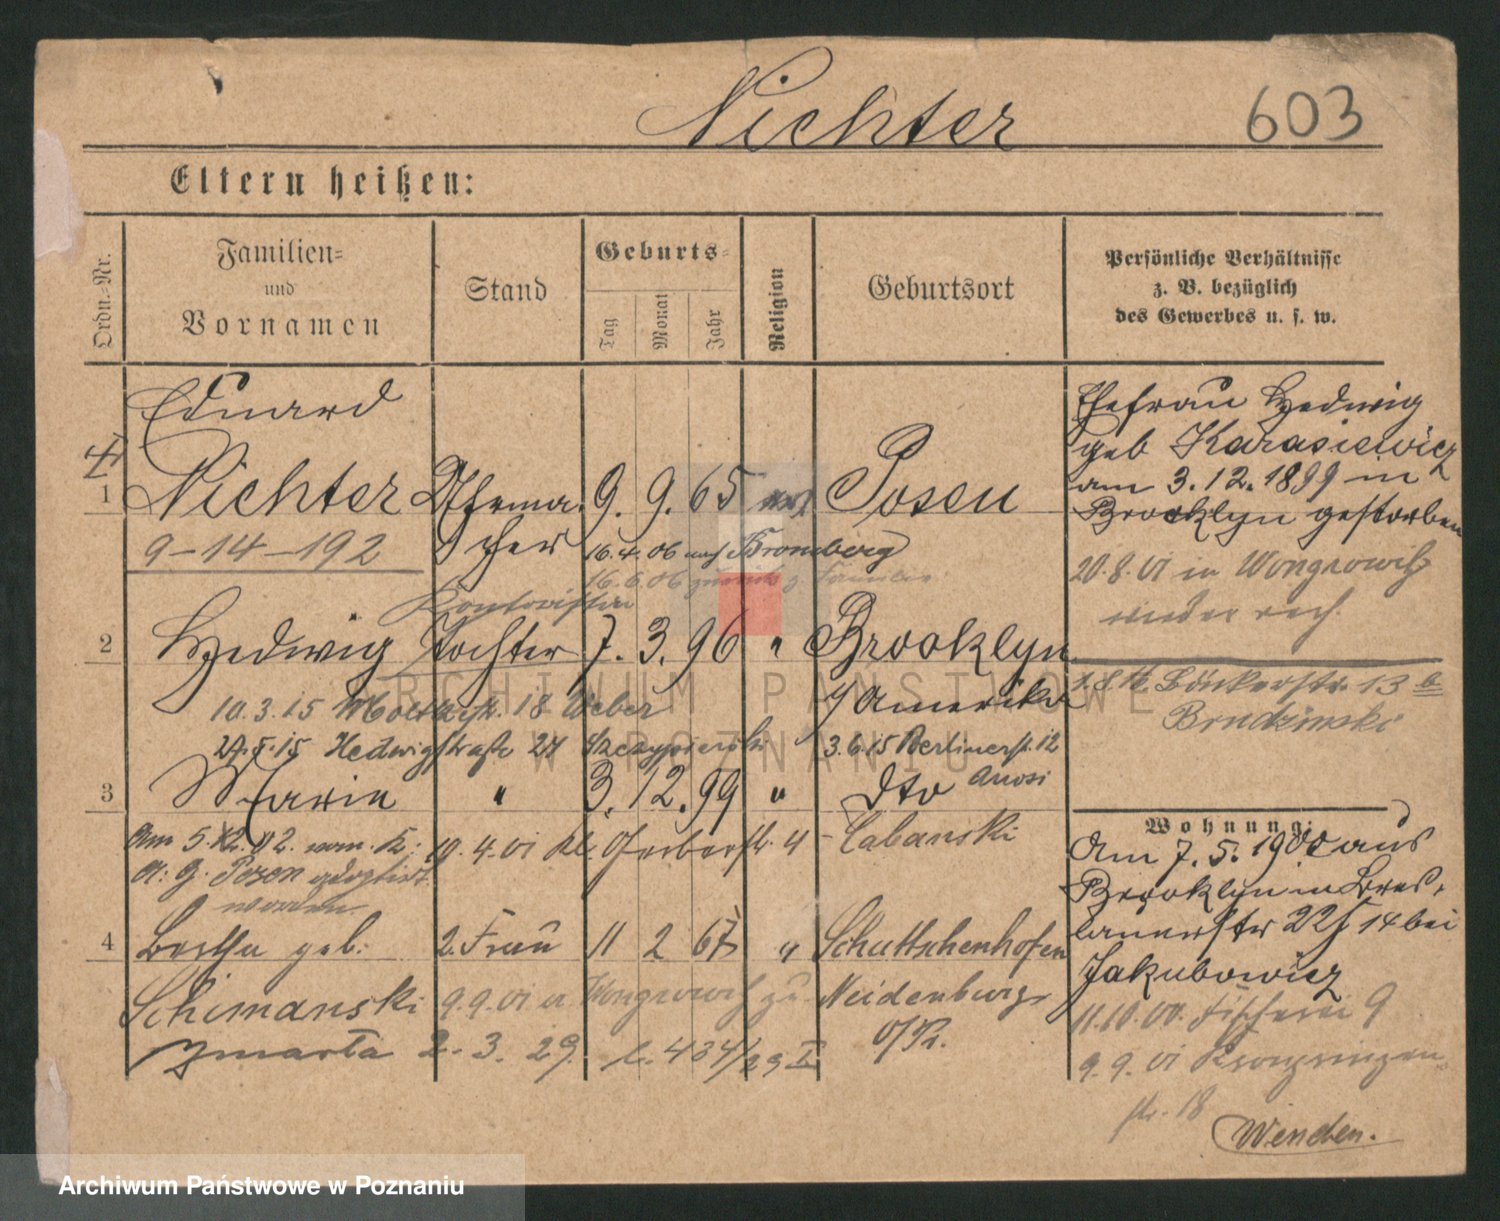 Nichter
603
Eltern heißen:
Ordn.-Nr.
Familien-
und
Vornamen
Stand
Geburts-
Tag
Monat
Jahr
Religion
Geburtsort
Persönliche Verhältnisse
z. B. bezüglich
des Gewerbes u. s. w.
Eduard
1 Nichter Uhrma- 9. 9. 65 Posen
cher
9-14-192
16.4.06 nach Bromberg
16.6.06 zurück z. Familie
Kontoristin
2 Hedwig Tochter 7. 3. 96 " Brooklyn
Amerika
10.3.15 Moltkestr. 18 Weber
15 Hedwigstraße 27 3.6.15 Berlinerst. 12
3 Marie " 3. 12. 99 " dto
Am 5. 12.
10. 4. 01 Kl. Gerberstr. 4 Cabanski
adoptirt
worden
4 Bertha geb: 2. Frau 11 2 67 " Schuttschenhofen
Schimanski 9.9.01 Wongrowitz Neidenburg
O/Pr.
zmarła 2. 3. 29. 434/29 II
Ehefrau Hedwig
geb Karasiewicz
am 3.12.1899 in
Brooklyn gestorben
20.8.01 in Wongrowitz
Bäckerstr. 13 b
Brudzinski
Wohnung:
Am 7. 5. 1900 aus
Brooklyn in Bres-
lauerstr 22 14 bei
Jakubowicz
11.10.00. Fischerei 9
9. 9. 01 Kronprinzen-
str. 18
Wenden.
ARCHIWUM PAŃSTWOWE
W POZNANIU
Archiwum Państwowe w Poznaniu